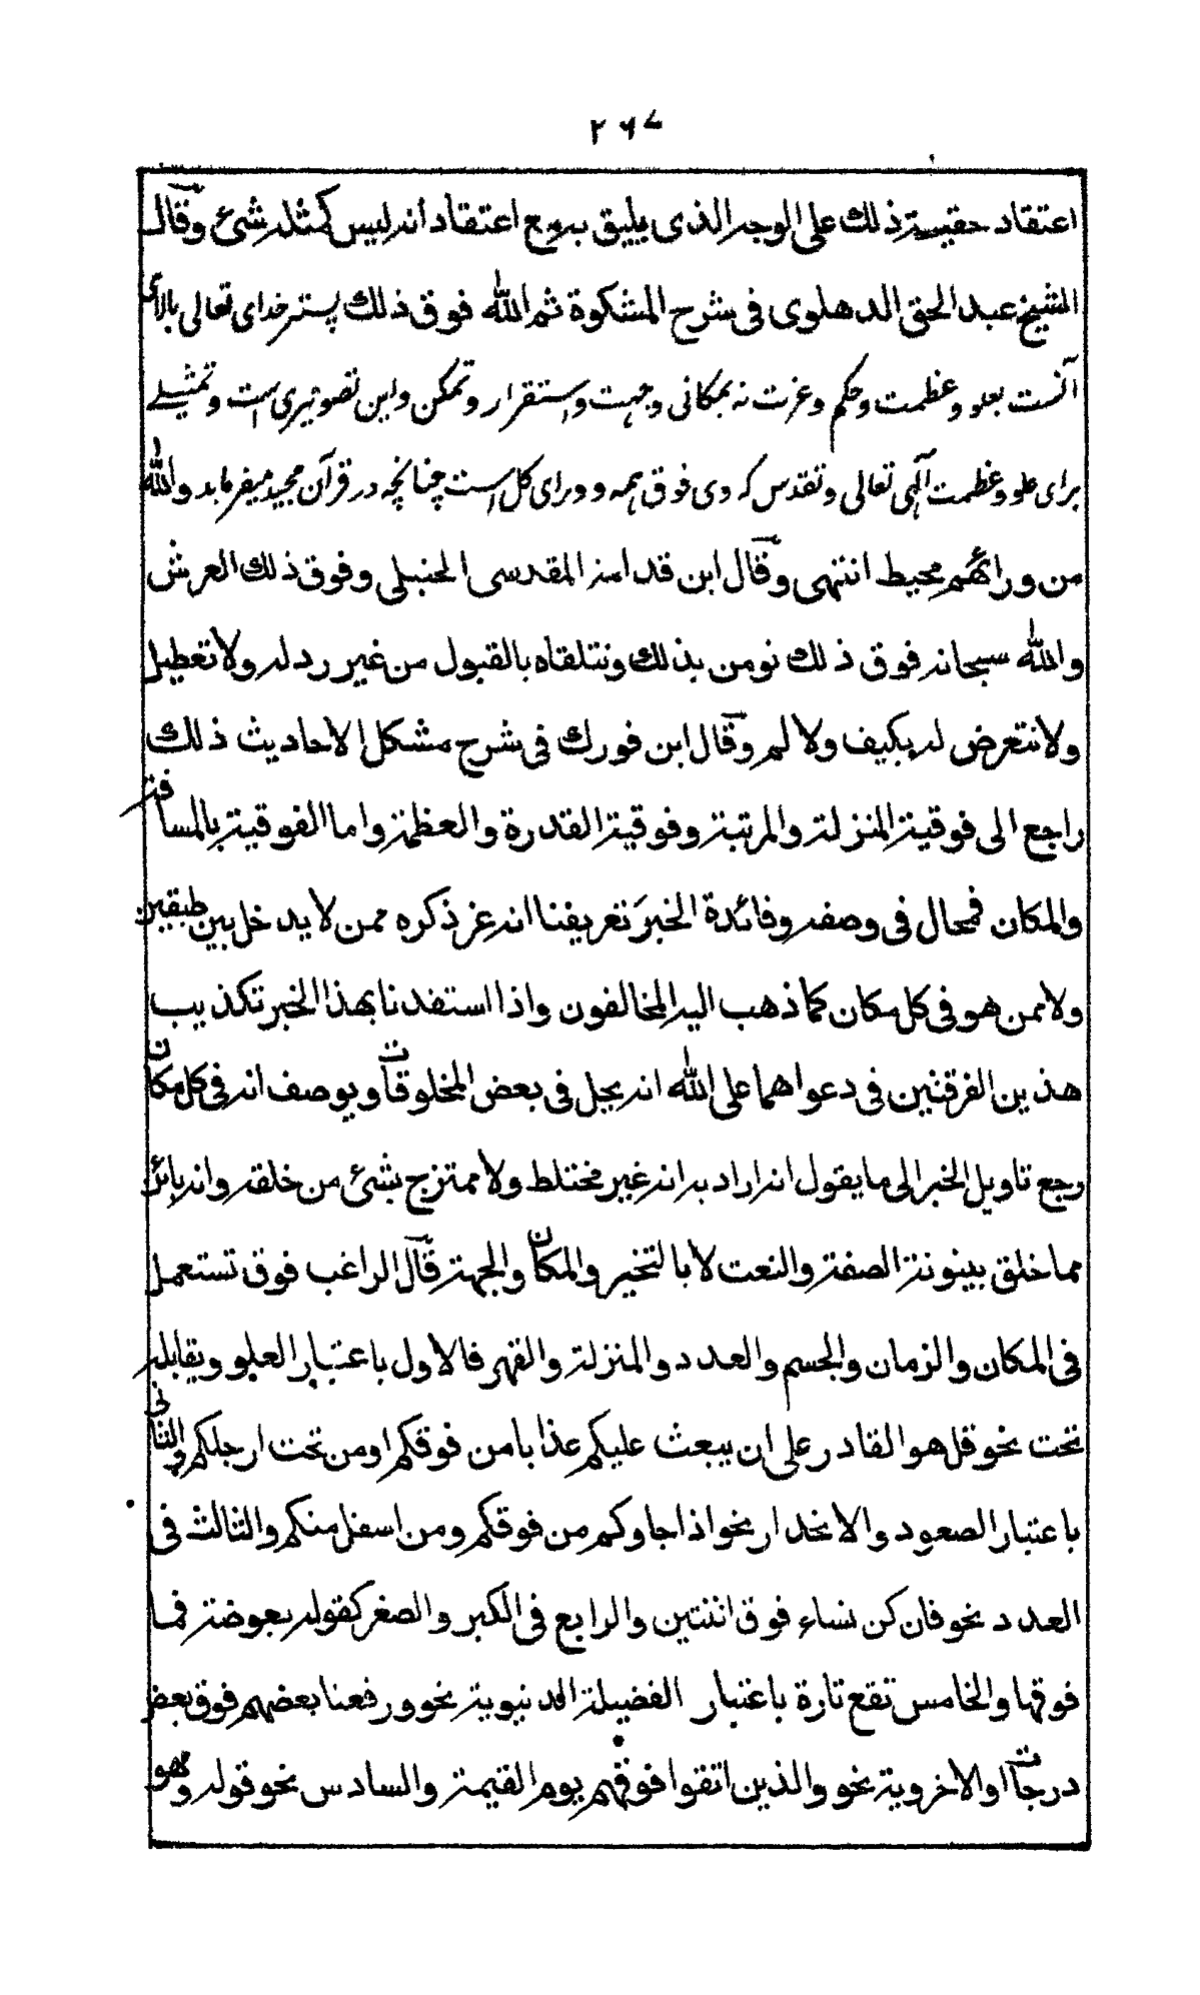 ٢٦٧
اعتقاد حقيته ذلك على الوجه الذى يليق به مع اعتقاد انه ليس كمثله شئ وقال
الشيخ عبد الحق الدهلوى فى شرح المشكوة ثم الله فوق ذلك پستر خداى تعالى بالاى
آنست بعلو وعظمت وحكم وعزت نه بمكانى وجهت واستقرار وتمكن واين تصويرى است وتمثيلے
براى علو وعظمت آلهى تعالى وتقدس كه وى فوق همه وورای كل است چنانچه در قرآن مجيد ميفرمايد والله
من ورائهم محيط انتهى وقال ابن قدامة المقدسى الحنبلى وفوق ذلك العرش
والله سبحانه فوق ذلك نومن بذلك ونتلقاه بالقبول من غير رد له ولا تعطيل
ولا نتعرض له بكيف ولا لم وقال ابن فورك فى شرح مشكل الاحاديث ذلك
راجع الى فوقية المنزلة والمرتبة وفوقية القدرة والعظمة واما الفوقية بالمسافة
والمكان فمحال فى وصفه وفائدة الخبر تعريفنا انه عز ذكره ممن لا يدخل بين طبقين
ولا ممن هو فى كل مكان كما ذهب اليه المخالفون واذا استفدنا بهذا الخبر تكذيب
هذين الفرقتين فى دعواهما على الله انه يحل فى بعض المخلوقات ويوصف انه فى كل مكان
رجع تاويل الخبر الى ما يقول انه اراد به انه غير مختلط ولا ممتزج بشئ من خلقه وانه بائن
مما خلق بينونة الصفة والنعت لا بالتخير والمكان والجهة قال الراغب فوق تستعمل
فى المكان والزمان والجسم والعدد والمنزلة والقهر فالاول باعتبار العلو ويقابله
تحت نحو قل هو القادر على ان يبعث عليكم عذابا من فوقكم او من تحت ارجلكم والثانى
باعتبار الصعود والانحدار نحو اذا جاوكم من فوقكم ومن اسفل منكم والثالث فى
العدد نحو فان كن نساء فوق اثنتين والرابع فى الكبر والصغر كقوله بعوضة فما
فوقها والخامس تقع تارة باعتبار الفضيلة الدنيوية نحو ورفعنا بعضهم فوق بعض
درجات او الاخروية نحو والذين اتقوا فوقهم يوم القيمة والسادس نحو قوله وهو